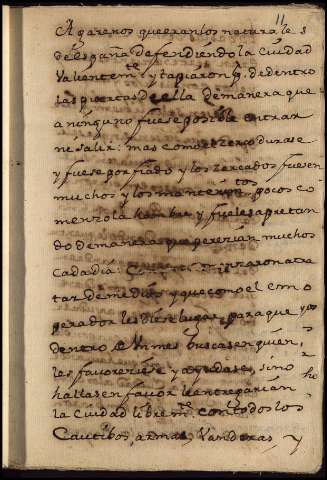 11
Agarenos que eran los naturales
de españa defendiendo la ciudad
Valientemte y tapiaron de dentro
las puertas de ella de manera que
a ninguno fuese posible entrar
ni salir: mas como el cerco durase
y fuese porfiado y los cercados fuesen
muchos y los mantenimtos pocos co
menzo la hambre y fueles apretan
do de manera que perecian muchos
cada dia: Comenzaron a tra
tar de medios y que como el em
perador les diese lugar para que
dentro de un mes buscasen quien
les favoreciese y ayudase, si no
hallasen favor le entregarian
la Ciudad libremte con todos los
Cautibos, armas, Vanderas, y